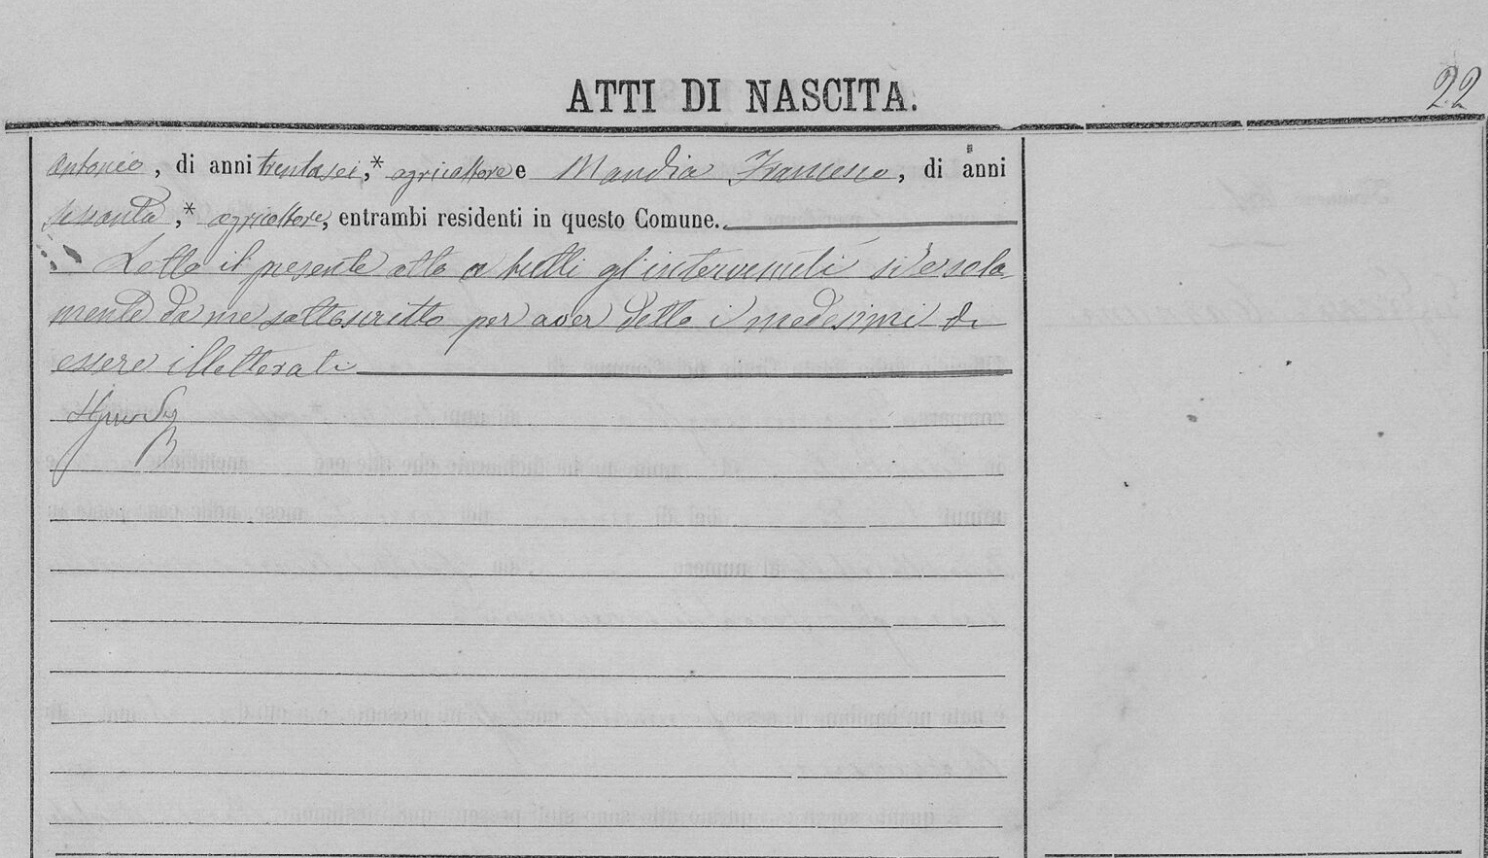 ATTI DI NASCITA.
22
Antonio, di anni trentasei,* agricoltore e Mandia Francesco, di anni
sessanta,* agricoltore, entrambi residenti in questo Comune.
Letto il presente atto a tutti gl'intervenuti si è sola
mente da me sottoscritto per aver detto i medesimi di
essere illetterati